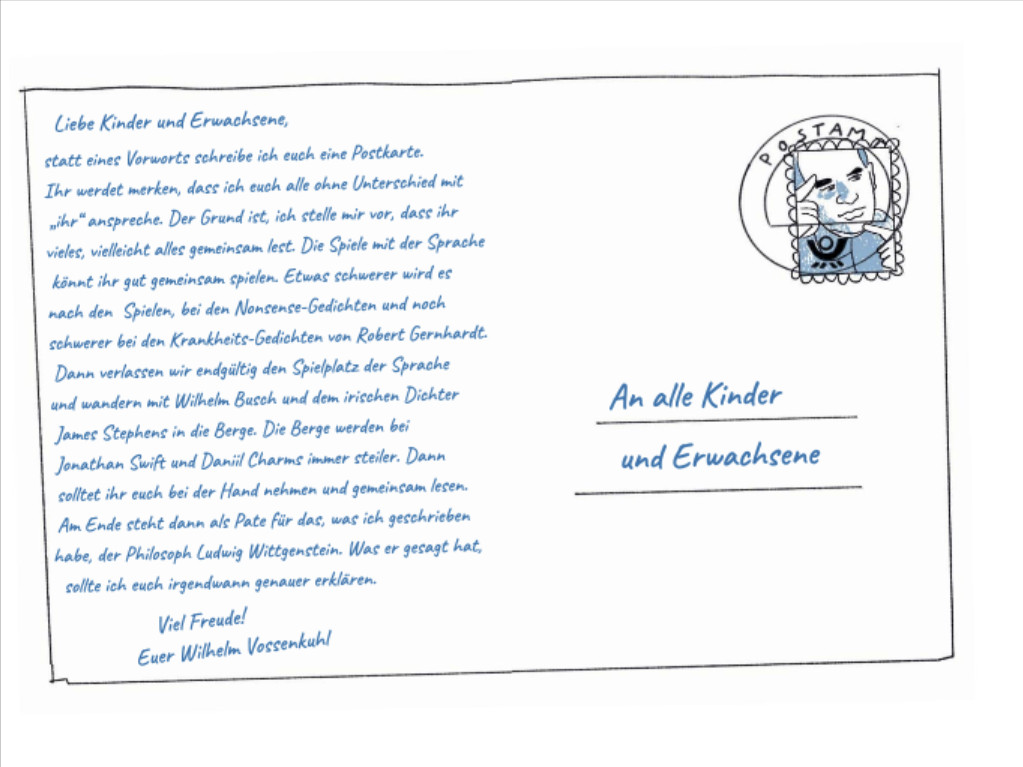 Liebe Kinder und Erwachsene,
statt eines Vorworts schreibe ich euch eine Postkarte.
Ihr werdet merken, dass ich euch alle ohne Unterschied mit
„ihr“ anspreche. Der Grund ist, ich stelle mir vor, dass ihr
vieles, vielleicht alles gemeinsam lest. Die Spiele mit der Sprache
könnt ihr gut gemeinsam spielen. Etwas schwerer wird es
nach den Spielen, bei den Nonsense-Gedichten und noch
schwerer bei den Krankheits-Gedichten von Robert Gernhardt.
Dann verlassen wir endgültig den Spielplatz der Sprache
und wandern mit Wilhelm Busch und dem irischen Dichter
James Stephens in die Berge. Die Berge werden bei
Jonathan Swift und Daniil Charms immer steiler. Dann
solltet ihr euch bei der Hand nehmen und gemeinsam lesen.
Am Ende steht dann als Pate für das, was ich geschrieben
habe, der Philosoph Ludwig Wittgenstein. Was er gesagt hat,
sollte ich euch irgendwann genauer erklären.
Viel Freude!
Euer Wilhelm Vossenkuhl
POSTAMT
An alle Kinder
und Erwachsene